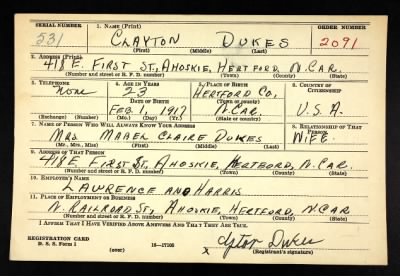 SERIAL NUMBER 1. NAME (Print) ORDER NUMBER
531 CLAYTON DUKES 2091
(First) (Middle) (Last)
2. ADDRESS (Print)
418 E. FIRST ST, AHOSKIE, HERTFORD, N.CAR.
(Number and street or R. F. D. number) (Town) (County) (State)
3. TELEPHONE 4. AGE IN YEARS 5. PLACE OF BIRTH 6. COUNTRY OF CITIZENSHIP
NONE 23 HERTFORD CO,
DATE OF BIRTH (Town or county)
FEB, 1, 1917 N.CAR. U.S.A.
(Exchange) (Number) (Mo.) (Day) (Yr.) (State or country)
7. NAME OF PERSON WHO WILL ALWAYS KNOW YOUR ADDRESS 8. RELATIONSHIP OF THAT PERSON
MRS MABEL CLAIRE DUKES WIFE
(Mr., Mrs., Miss) (First) (Middle) (Last)
9. ADDRESS OF THAT PERSON
418 E FIRST ST, AHOSKIE, HERTFORD, N.CAR.
(Number and street or R. F. D. number) (Town) (County) (State)
10. EMPLOYER'S NAME
LAWRENCE AND HARRIS
11. PLACE OF EMPLOYMENT OR BUSINESS
N. RAILROAD ST, AHOSKIE, HERTFORD, N.CAR
(Number and street or R. F. D. number) (Town) (County) (State)
I AFFIRM THAT I HAVE VERIFIED ABOVE ANSWERS AND THAT THEY ARE TRUE.
REGISTRATION CARD
D. S. S. Form 1 (over) 16-17105 x Dukes
(Registrant's signature)